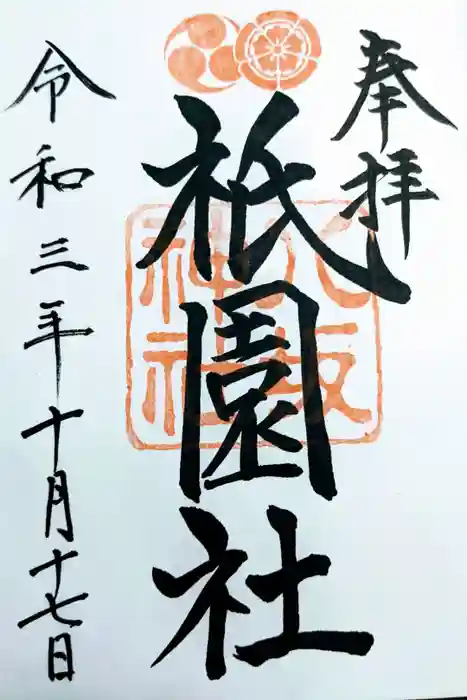 奉拝
祇園社
八坂神社
令和三年十月十七日